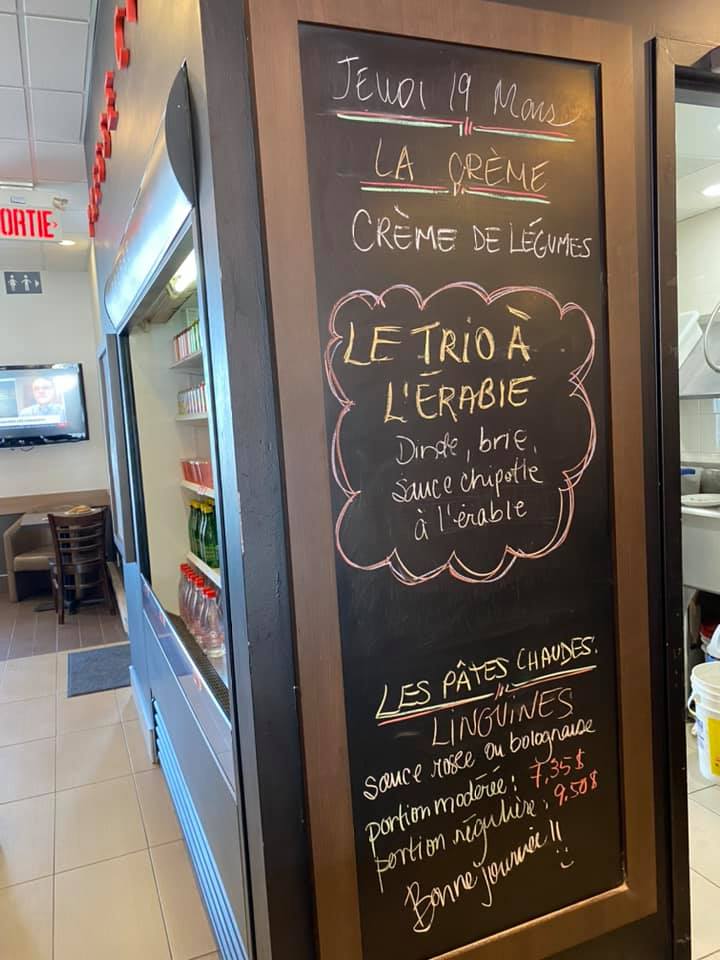 ORTIE
Jeudi 19 Mars
LA CRÈME
CRÈME DE LÉGUMES
LE TRIO À
L'ÉRABLE
Dinde, brie,
sauce chipotle
à l'érable
LES PÂTES CHAUDES.
LINGUINES
sauce rosée ou bolognaise
portion modérée: 7,35$
portion régulière: 9,50$
Bonne journée!!